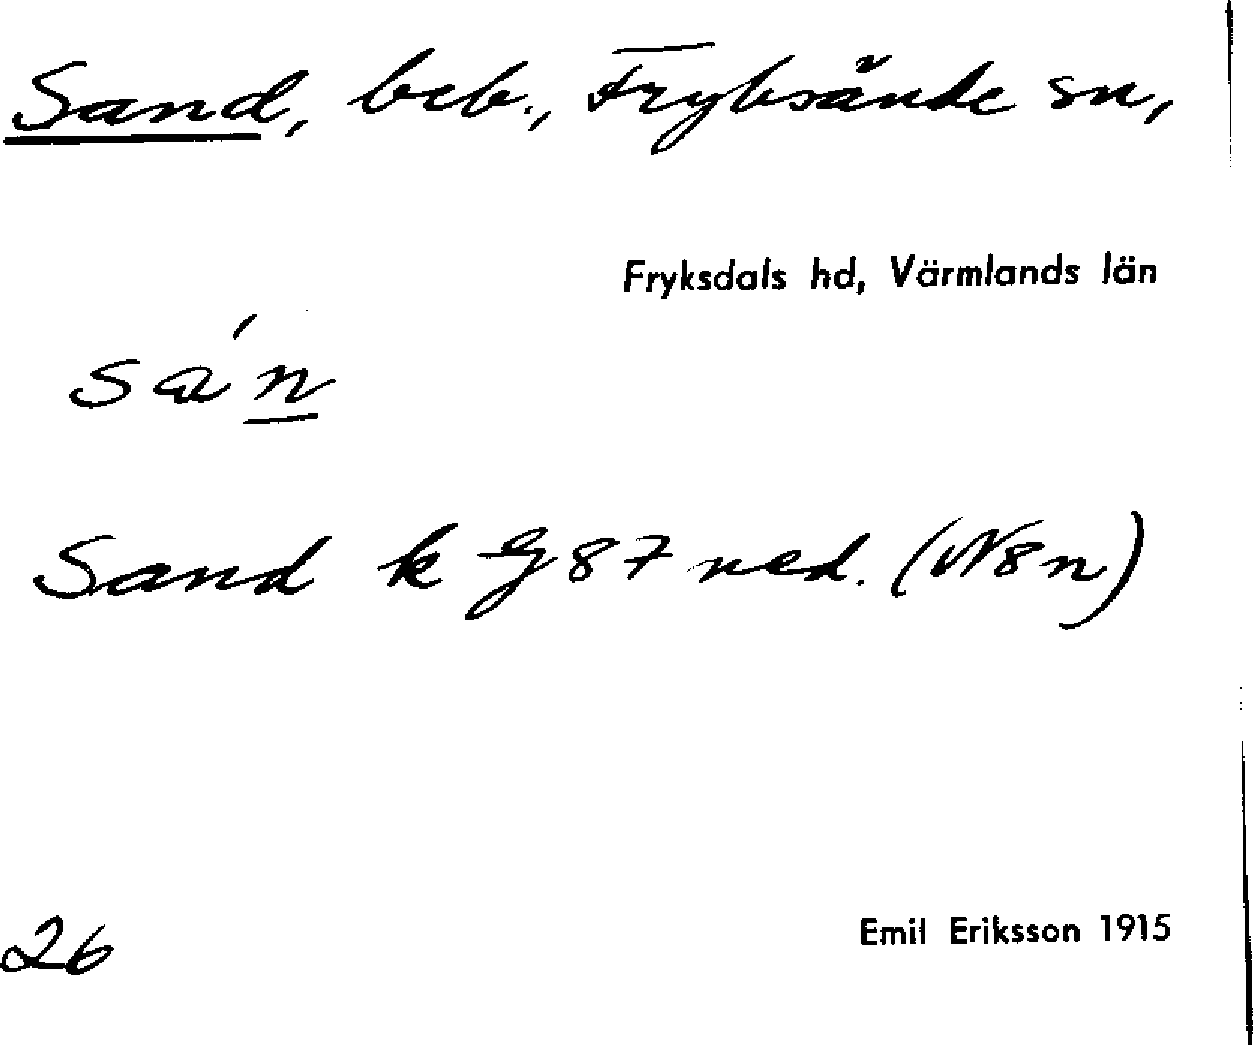 Sand, beb., Fryksände sn,
Fryksdals hd, Värmlands län
sa´n
Sand k G 87 ned. (N8n)
26 Emil Eriksson 1915